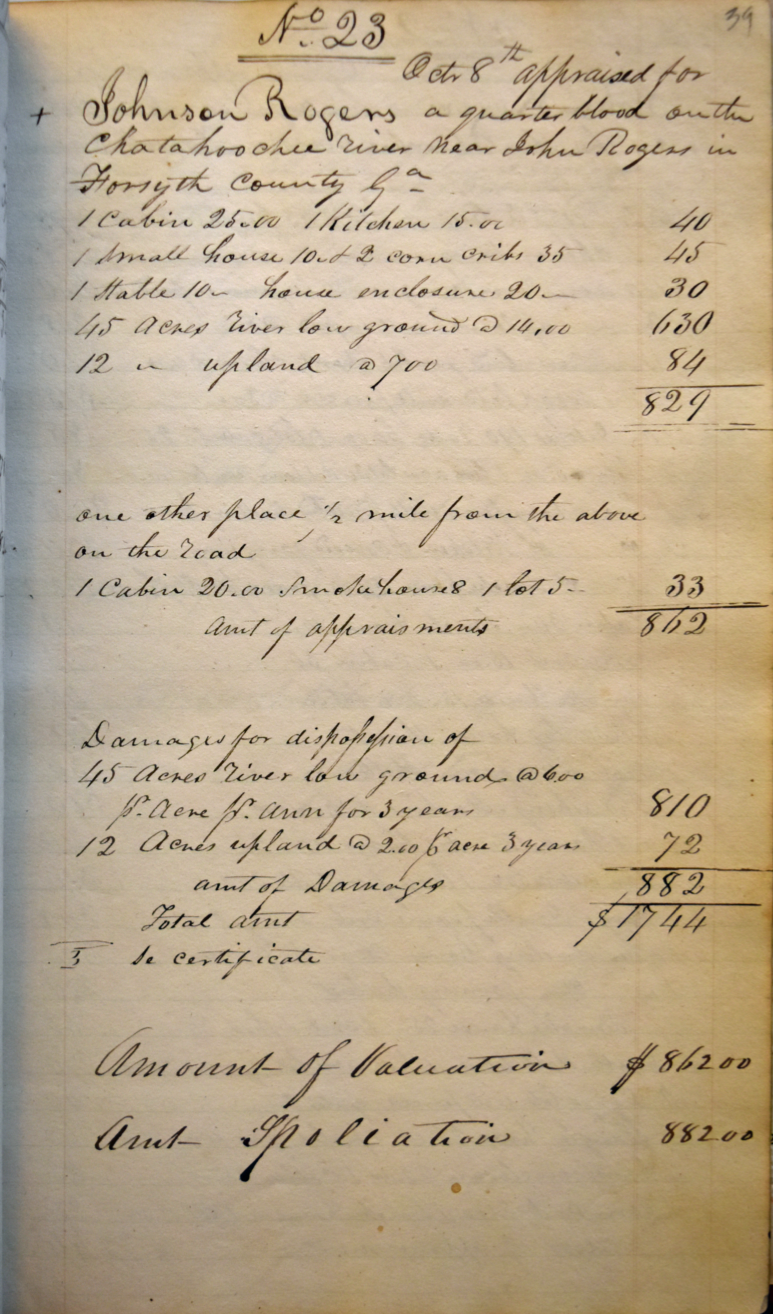 39
No. 23
Octr 8th appraised for
+ Johnson Rogers a quarter blood on the
Chatahoochee river near John Rogers in
Forsyth County Ga
1 Cabin 25.00 1 Kitchen 15.00 40
1 small house 10 & 2 corn cribs 35 45
1 Stable 10 house enclosure 20 30
45 Acres river low ground @ 14.00 630
12 " upland @ 700 84
829
one other place 1/2 mile from the above
on the road
1 Cabin 20.00 smokehouse 8 1 lot 5 33
amt of appraisments 862
Damages for dispossession of
45 Acres river low ground @ 6.00
pr. Acre pr. ann for 3 years 810
12 Acres upland @ 2.00 pr acre 3 years 72
amt of Damages 882
Total amt $1744
se certificate
Amount of Valuation $ 862 00
Amt Spoliation 882 00